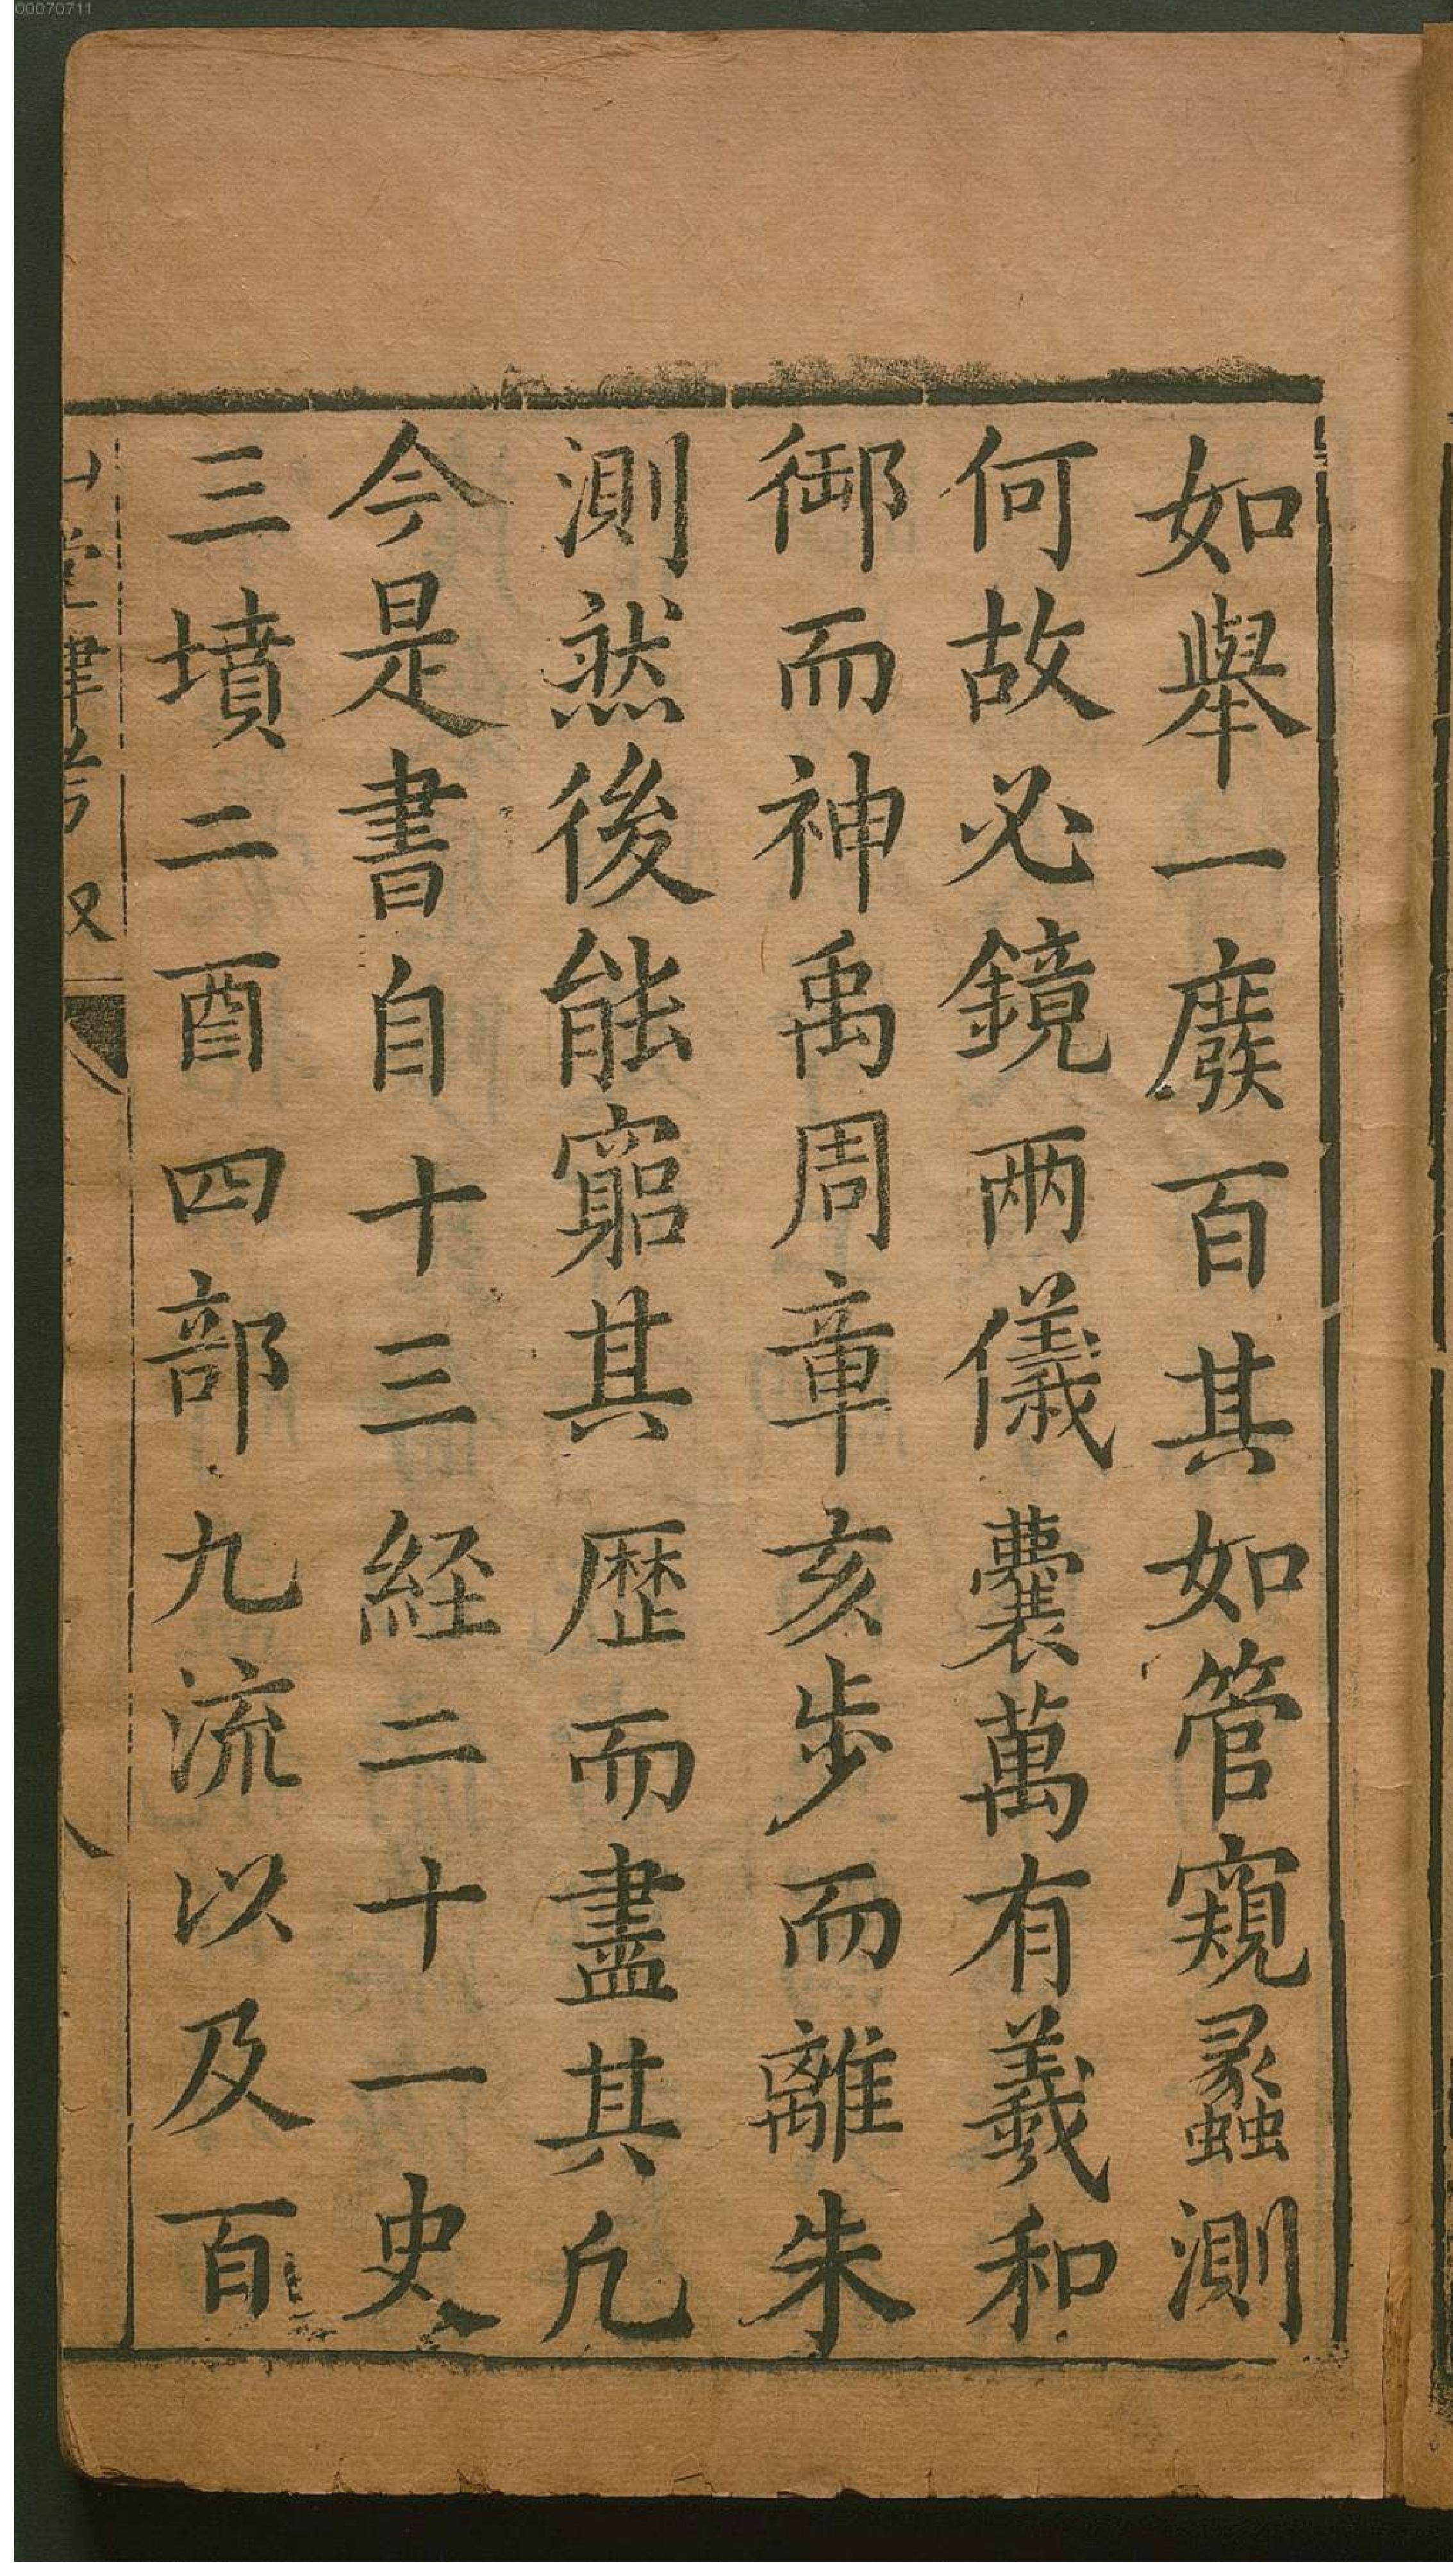 00070711
如舉一廢百其如管窺蠡測
何故必鏡兩儀囊萬有羲和
御而神禹周章亥步而離朱
測然後能窮其歷而盡其凡
今是書自十三経二十一史
三墳二酉四部九流以及百